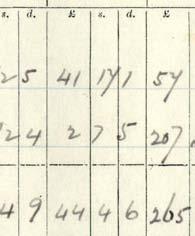 s. d. £ s. d. £
2 5 41 17 1 57
2 4 2 7 5 207
4 9 44 4 6 265